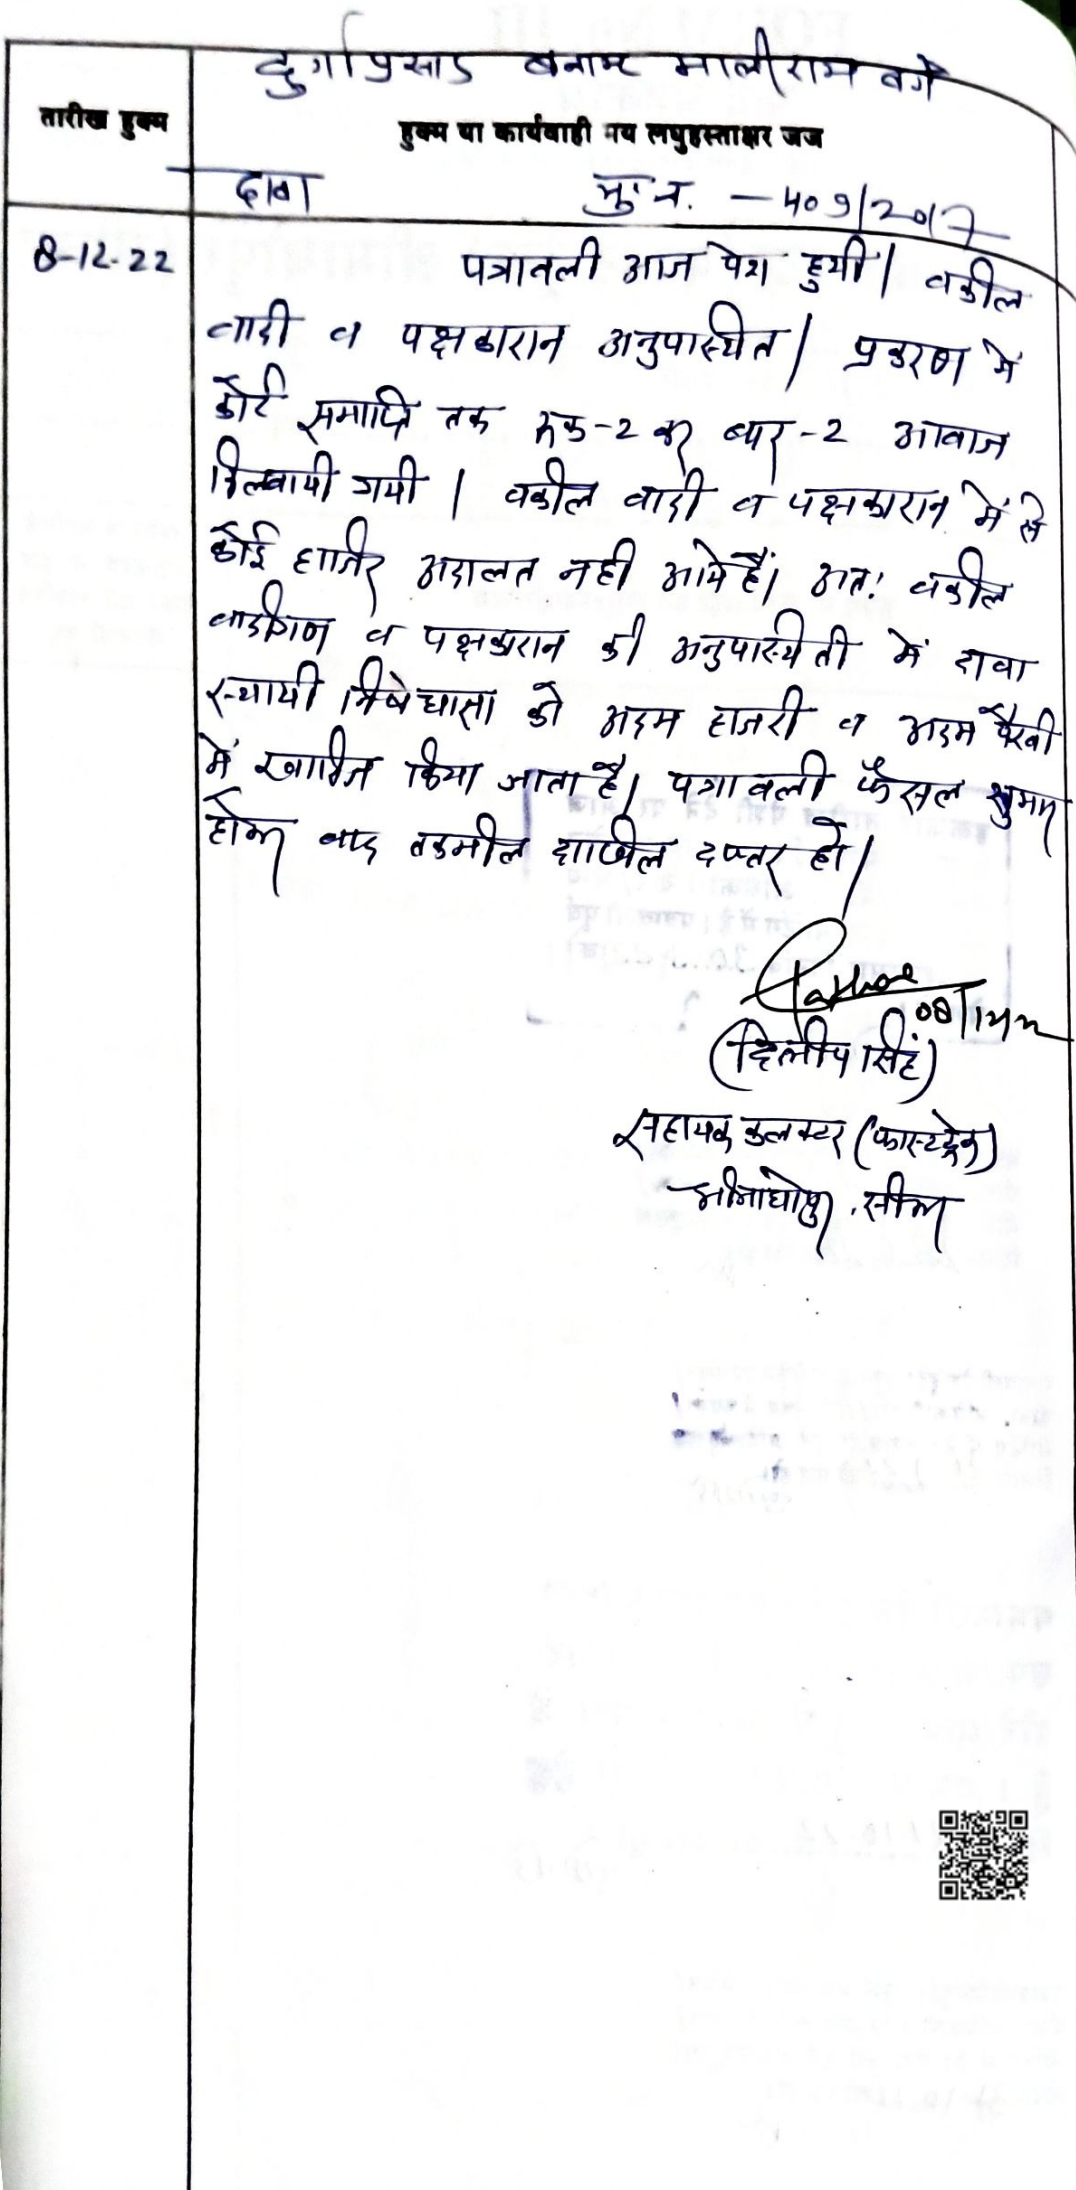 दुर्गाप्रसाद बनाम मालीराम वगै
तारीख हुक्म
हुक्म या कार्यवाही मय लघुहस्ताक्षर जज
दावा मु.न. - 409/2017
8-12-22
पत्रावली आज पेश हुयी। वकील
वादी व पक्षकारान अनुपास्थित। प्रकरण में
कोर्ट समाप्ति तक रूक-2 कर बार-2 आवाज
दिलवायी गयी। वकील वादी व पक्षकारान में से
कोई हाजिर अदालत नही आये हैं। अत: वकील
वादीगण व पक्षकारान की अनुपास्थिती में दावा
स्थायी निषेधाज्ञा को अदम हाजरी व अदम पैरवी
में खारिज किया जाता है। पत्रावली फैसल शुमार
होकर बाद तकमील दाखिल दफ्तर हो।
08/12/22
(दिलीप सिंह)
सहायक कलक्टर (फास्टट्रेक)
श्रीमाधोपुर, सीकर